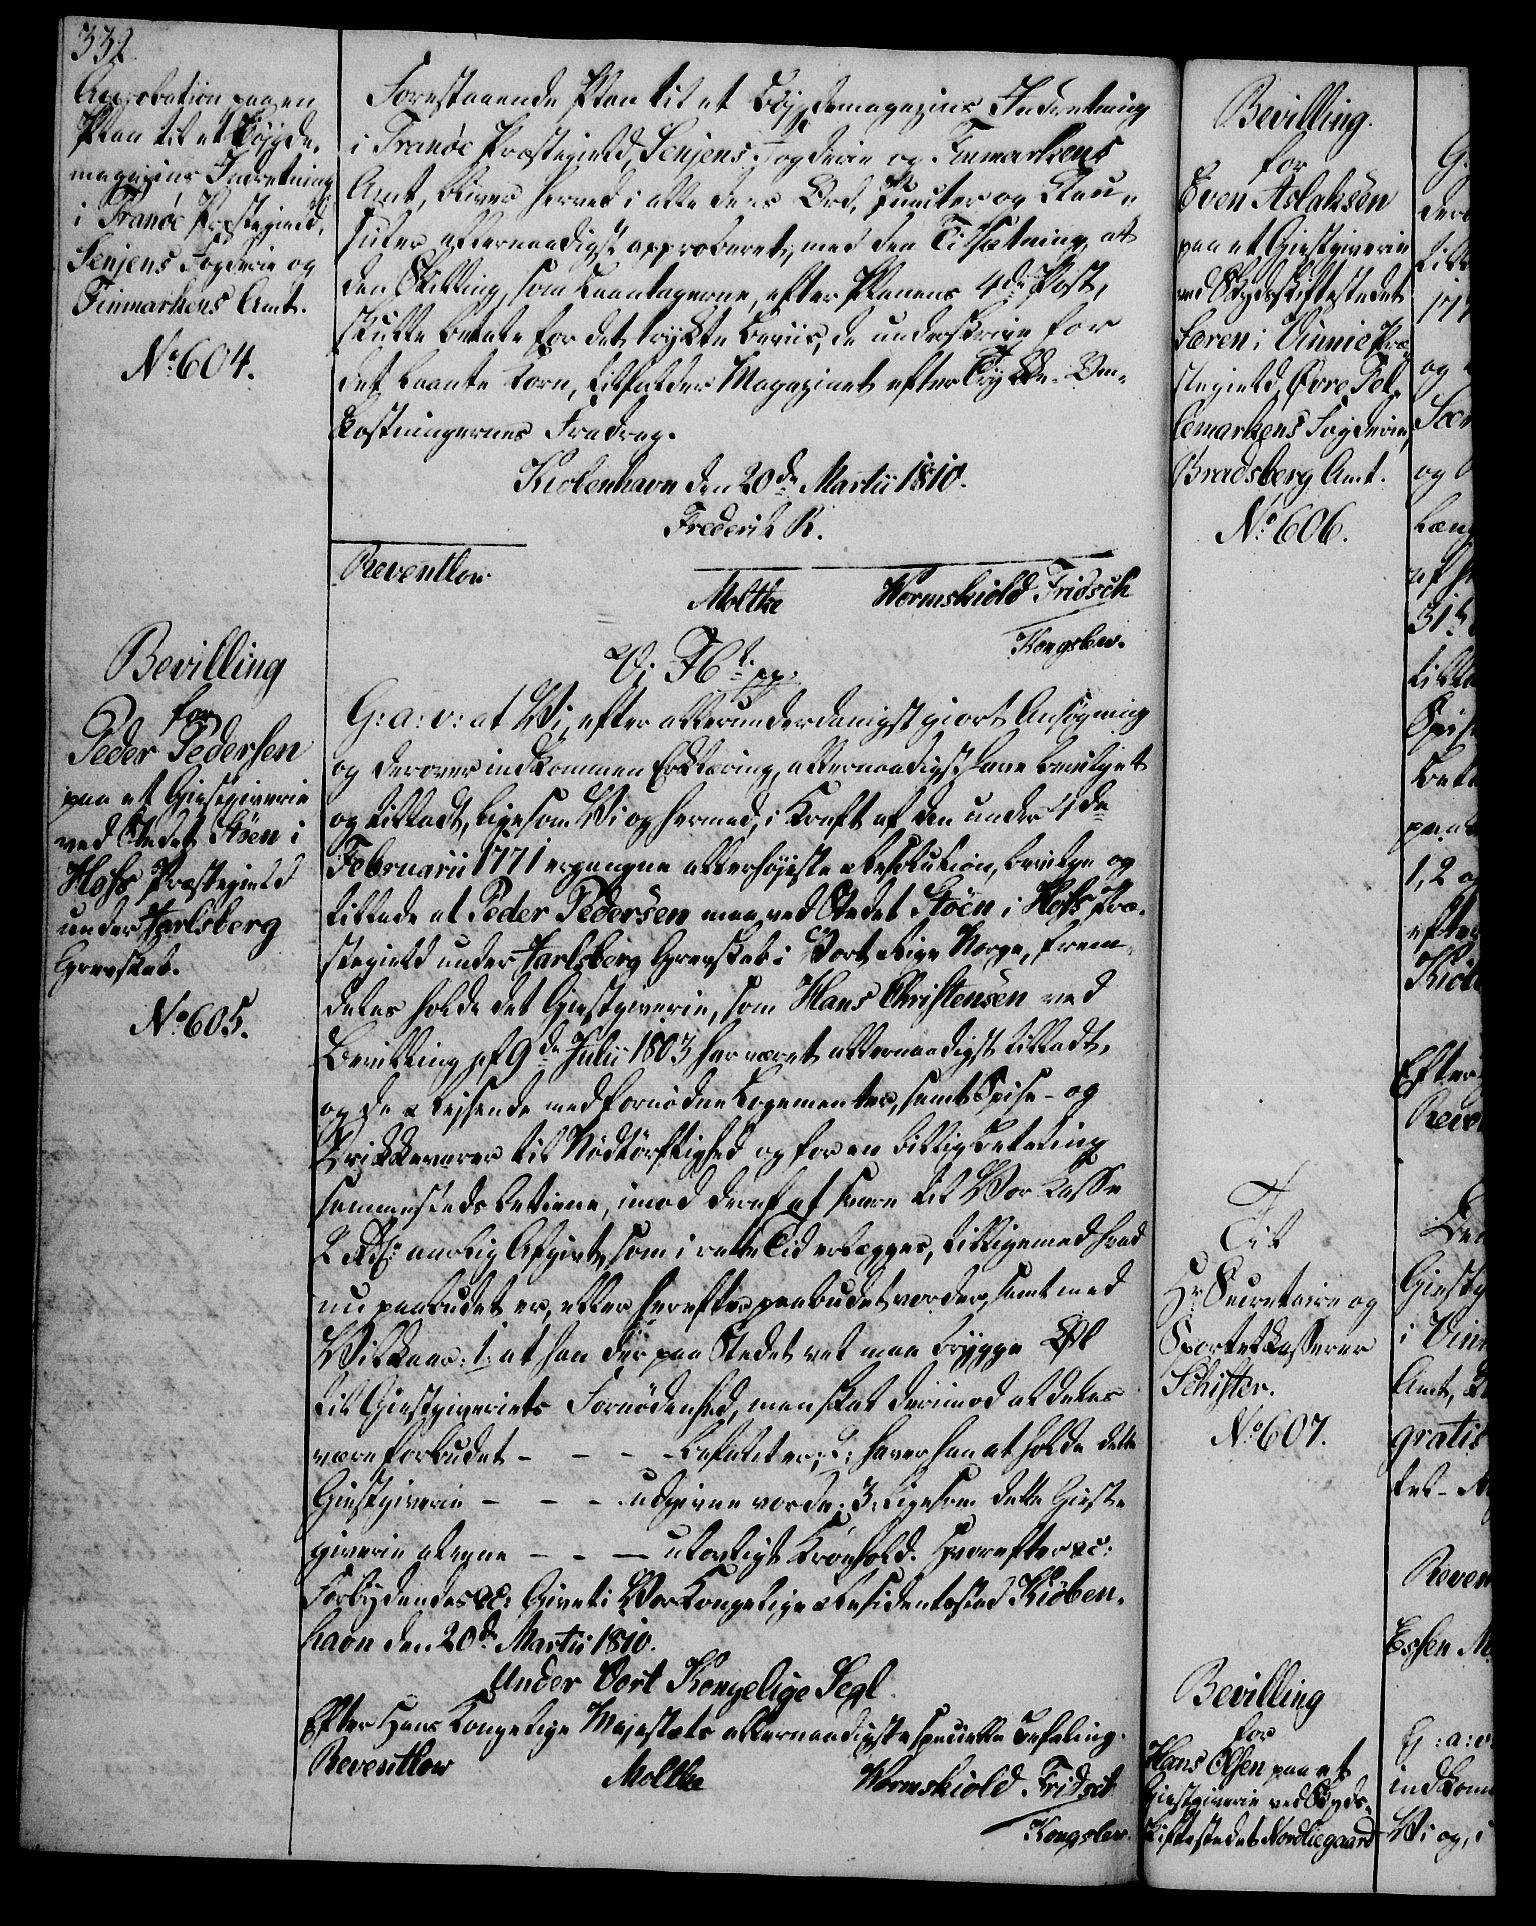 332.
Approbation paa en
Plan til et Bøygde-
magazins Indretning
i Tranöe Præstegield,
Senjens Fogderie og
Finmarkens Amt.
No 604.
Forestaaende Plan til et Bøygdemagazins Indretning
i Tranöe Præstegield, Senjens Fogderie og Finmarkens
Amt, bliver herved i alle dens Ord, Puncter og Clau-
suler allernaadigst approberet, med den Tilsætning, at
den Skilling, som Laantagerne, efter Planens 4de Post,
skulle betale for det trykte Beviis, de underskrive for
det laante Korn, tilfalder Magazinet efter Trykke-Om-
kostningernes Fradrag.
Kiöbenhavn den 20de Martii 1810.
Frederik R.
Reventlow
Moltke Wormskiold Fridsch
Kongslew.
Bevilling
for
Peder Pedersen
paa et Giestgiverie
ved Stedet Stöen i
Hofs Præstegield
under Jarlsberg
Grevskab.
No 605.
Vi F 6t pp.
G: a: v: at Vi, efter allerunderdanigst giort Ansøgning
og derover indkommen Erklæring, allernaadigst have bevilget
og tilladt, ligesom Vi og hermed, i Kraft af den under 4de
Februarii 1771 ergangne allerhøjeste Resolution, bevilge og
tillade at Peder Pedersen maae ved Stedet Stöen i Hofs Præ-
stegield under Jarlsberg Grevskab i Vort Rige Norge, frem-
deles holde det Giestgiverie, som Hans Christensen ved
Bevilling af 9de Julii 1803 har været allernaadigst tilladt,
og de Reisende med fornödne Logementer, samt Spise- og
Drikkevarer til Nödtörftighed og for en billig Betaling
sammesteds betiene, imod deraf at svare til Vor Kasse
2 Rdr. aarlig Afgivt, som i rette Tid erlægges, tilligemed hvad
nu paabudet er, eller herefter paabudet vorder, samt med
Vilkaar: 1: at han der paa Stedet vel maa brygge Öl
til Giestgiveriets Fornödenhed, men skal derimod aldeles
være forbudet - - - - befalet er; 2: haver han at holde dette
Giestgiverie - - - udgivne vorde; 3: Ligesom dette Gieste
giverie alene - - - ulovligt Kroehold. Hvorefter &c:
Forbydendes &c: Givet i Vor Kongelige Residentsstad Kiöben-
havn den 20de Martii 1810.
Under Vort Kongelige Segl
Efter Hans Kongelige Majestæts allernaadigste specielle Befaling.
Reventlow Moltke Wormskiold Fridsch
Kongslew.
Bevilling.
for
Even Aslaksen
paa et Giestgiverie
ved Skydsskiftestedet
Særen i Vinnie Præ-
stegield, Övre Tel-
lemarkens Fogderie,
Bradsberg Amt.
No 606.
Til
Hr Secretaire og
Sportelkasserer
Schifter.
No 607.
Bevilling
for
Hans Olsen paa et
Giestgiverie ved Skyds-
skiftestedet Nordlægaard
og
177
og
Sær
og
31te
1, 2 o
efter
Kiöb
Efter
Reve
Giestg
i Vin
Amt,
gratis
Reven
Essen M
G: a: v:
indkom
Vi og, i